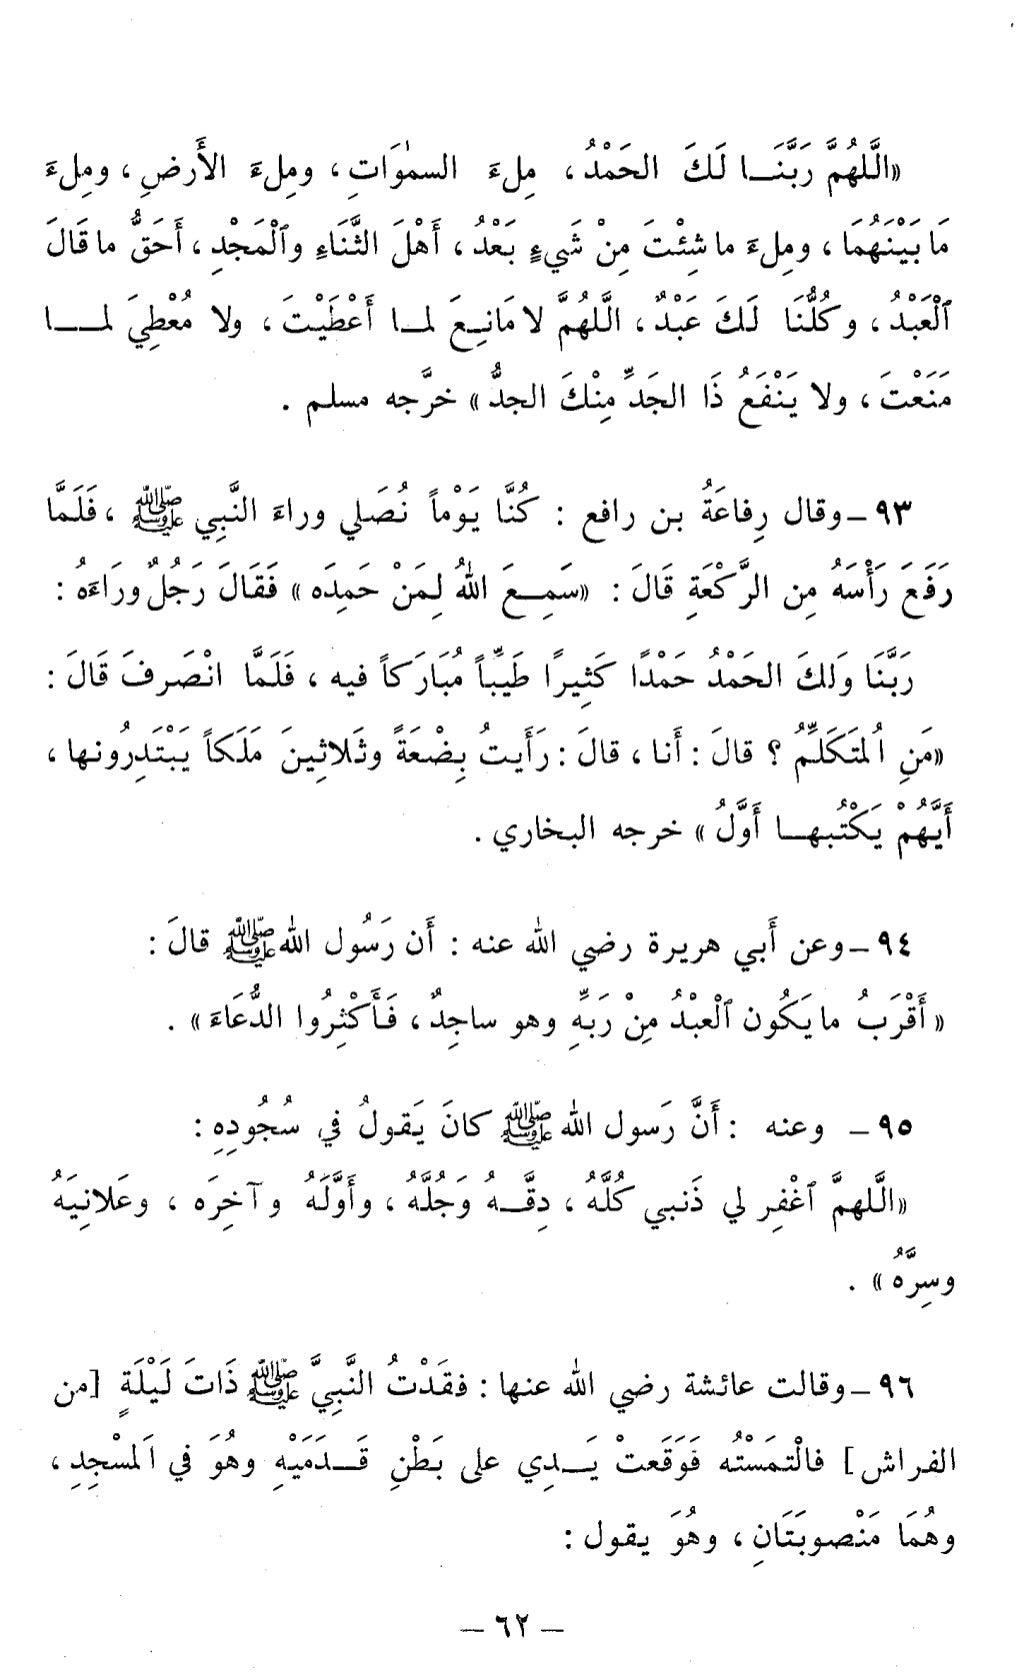 «الَّلهُمَّ رَبَّنَا لَكَ الحَمْدُ، مِلءَ السمٰوَاتِ، ومِلءَ الأَرضِ، ومِلءَ
مَا بَيْنَهُمَا، ومِلءَ ما شِئْتَ مِنْ شَيءٍ بَعْدُ، أَهْلَ الثَّنَاءِ وٱلْمَجْدِ، أَحَقُّ ما قَالَ
ٱلْعَبْدُ، وكُلُّنَا لَكَ عَبْدٌ، الَّلهُمَّ لا مَانِعَ لما أَعْطَيْتَ، ولا مُعْطِيَ لما
مَنَعْتَ، ولا يَنْفَعُ ذَا الجَدِّ مِنْكَ الجدُّ» خرَّجه مسلم .
٩٣ـ وقال رِفاعَةُ بن رافع : كُنَّا يَوْماً نُصَلي وراءَ النَّبِي ﷺ ، فَلَمَّا
رَفَعَ رَأْسَهُ مِن الرَّكْعَةِ قَالَ : «سَمِعَ اللهُ لِمَنْ حَمِدَه» فَقَالَ رَجُلٌ ورَاءَهُ :
رَبَّنَا وَلكَ الحَمْدُ حَمْدًا كَثِيرًا طَيِّباً مُبَارَكاً فيه ، فَلَمَّا انْصَرفَ قَالَ :
«مَنِ اُلمتَكَلِّمُ ؟ قالَ : أَنا ، قالَ : رَأَيتُ بِضْعَةً وثَلاثِينَ مَلَكاً يَبْتَدِرُونها ،
أَيَّهُمْ يَكْتُبها أَوَّلُ» خرجه البخاري .
٩٤ـ وعن أَبي هريرة رضي الله عنه : أَن رَسُول الله ﷺ قالَ :
«أَقْرَبُ ما يَكُون ٱلْعبْدُ مِنْ رَبِّهِ وهو ساجِدٌ، فَأَكْثِرُوا الدُّعَاءَ» .
٩٥ـ وعنه : أَنَّ رَسول الله ﷺ كانَ يَقولُ في سُجُودِهِ :
«الَّلهمَّ ٱغْفِر لي ذَنبي كُلَّهُ ، دِقَّهُ وَجُلَّهُ ، وأَوَّلَهُ وآخِرَه ، وعَلانِيَهُ
وسِرَّهُ» .
٩٦ـ وقالت عائشة رضي الله عنها : فقَدْتُ النَّبِيَّ ﷺ ذَاتَ لَيْلَةٍ [من
الفراش] فالْتمَسْتُه فَوَقَعتْ يَدِي على بَطْنِ قَدَمَيْهِ وهُوَ في اَلمسْجِدِ ،
وهُمَا مَنْصوبَتَانِ ، وهُوَ يقول :
ـ ٦٢ ـ